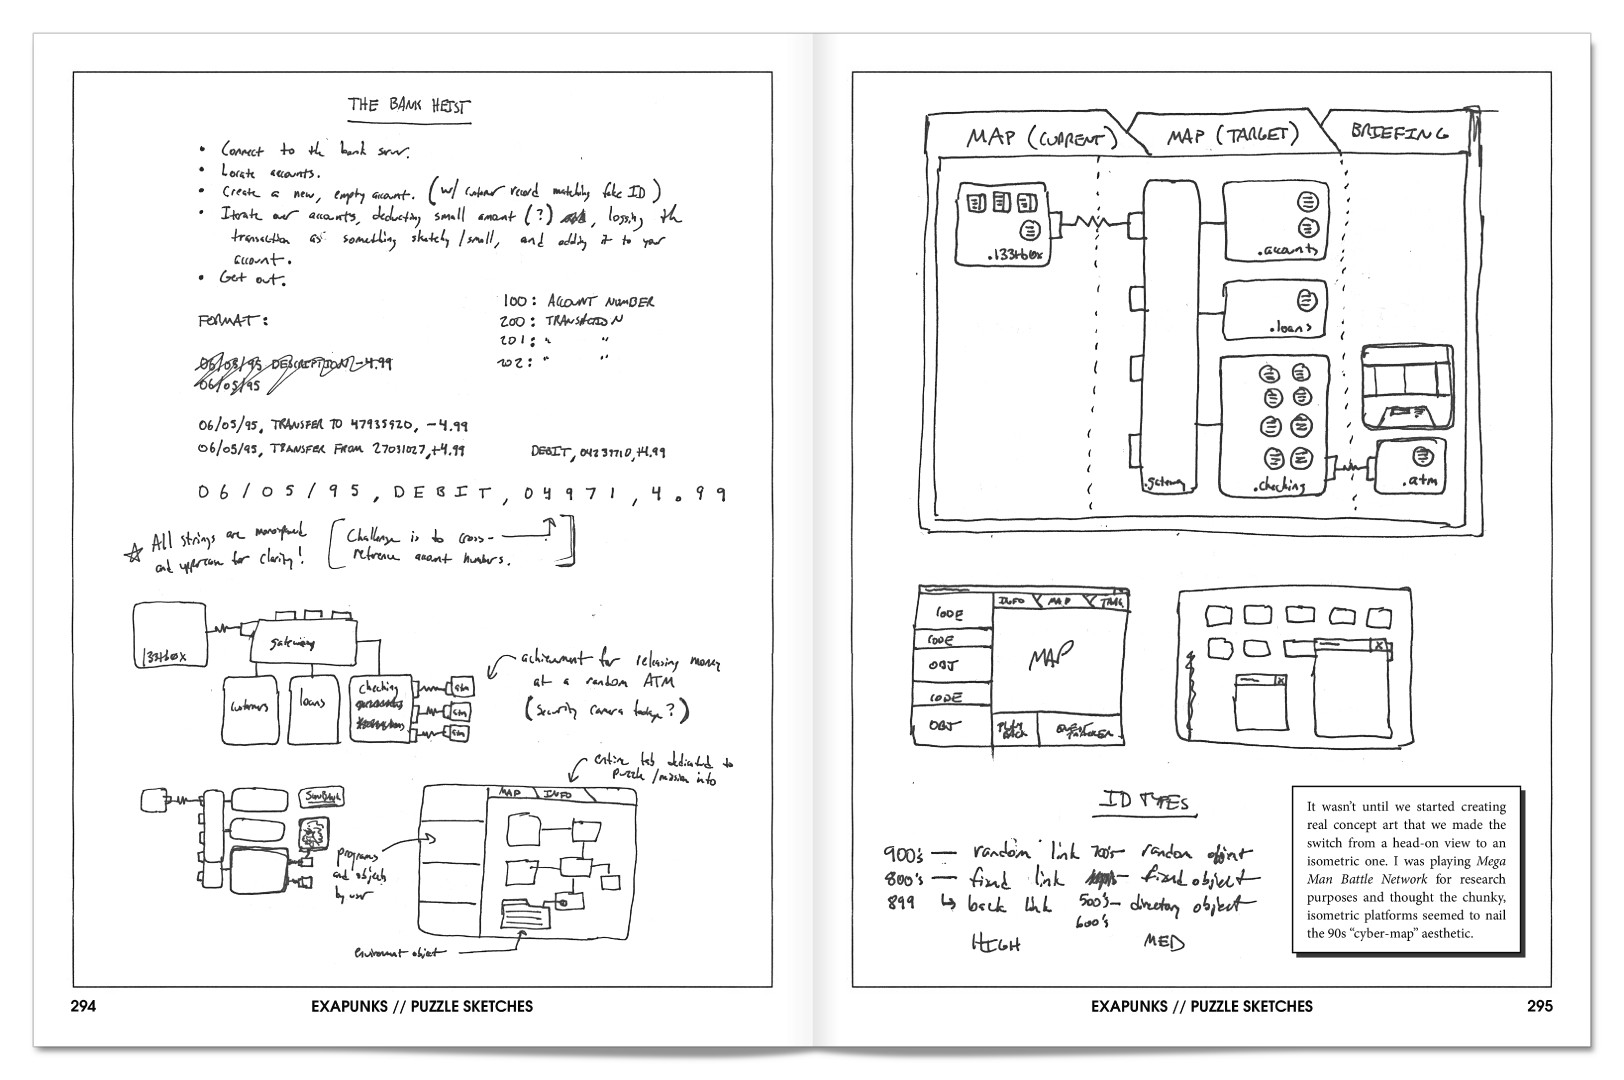 THE BANK HEIST
• Connect to the bank server.
• Locate accounts.
• Create a new, empty account. (w/ customer record matching fake ID)
• Iterate over accounts, deducting small amount (?) , logging the
transaction as something sketchy/small, and adding it to your
account.
• Get out.
100: ACCOUNT NUMBER
FORMAT:
200: TRANSACTION
201: " "
202: " "
06/05/95 DESCRIPTION -4.99
06/05/95
06/05/95, TRANSFER TO 47935920, -4.99
06/05/95, TRANSFER FROM 27031027, +4.99
DEBIT, 04237710, +4.99
06/05/95, DEBIT, 04971, 4.99
☆ All strings are monospaced
and uppercase for clarity!
[Challenge is to cross-
reference account numbers.]
l33tbox
gateway
customers
loans
checking
atm
atm
atm
achievement for releasing money
at a random ATM
(Security camera footage?)
entire tab dedicated to
puzzle/mission info
MAP
INFO
programs
and objects
by user
environment object
294
EXAPUNKS // PUZZLE SKETCHES
MAP (CURRENT)
MAP (TARGET)
BRIEFING
.l33tbox
.accounts
.loans
.gateway
.checking
.atm
CODE
CODE
OBJ
CODE
OBJ
INFO
MAP
MAP
PLAY
BACK
ID TYPES
900's — random link
700's — random object
800's — fixed link
— fixed object
899 ↳ back link
500's — directory object
600's
HIGH
MED
It wasn't until we started creating
real concept art that we made the
switch from a head-on view to an
isometric one. I was playing Mega
Man Battle Network for research
purposes and thought the chunky,
isometric platforms seemed to nail
the 90s “cyber-map” aesthetic.
EXAPUNKS // PUZZLE SKETCHES
295